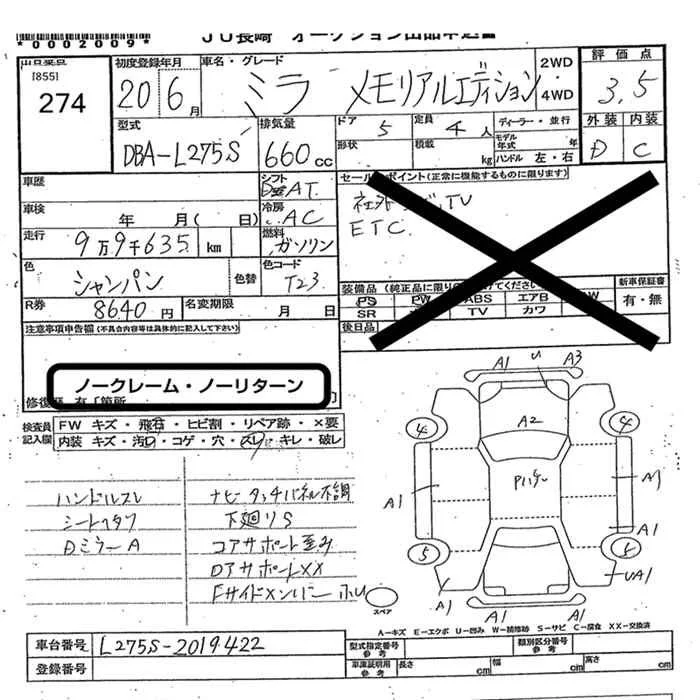 *0002009*
JU長崎 オークション出品申込書
[855]
274
初度登録年月
20 6月
車名・グレード
ミラ メモリアルエディション
2WD
4WD
評価点
3.5
外装 内装
D C
型式
DBA-L275S
排気量
660cc
ドア 5
形状
定員 4人
積載 kg
ディーラー・並行
モデル年式 年
ハンドル 左・右
車歴
シフト
AT
セールスポイント(正常に機能するものに限ります)
社外ナビ、TV
ETC
車検 年 月( 日)
冷房
AC
走行 9万9千635 km
燃料
ガソリン
色 シャンパン 色替
色コード
T23
R券 8640円
名変期限 月 日
PS PW ABS エアB
SR TV カワ
後日品
新車保証書
有・無
注意事項申告欄(不具合内容等は具体的に記入して下さい)
ノークレーム・ノーリターン
検査員記入欄
FW キズ・飛石・ヒビ割・リペア跡・×要
内装 キズ・汚レ・コゲ・穴・スレ・キレ・破レ
ハンドルスレ
シートヘタリ
DミラーA
ナビータッチパネル不調
下廻りS
コアサポート歪み
DアサポートXX
FサイドメンバーホU
スペア
A1 U A3
A2
4 4
Pハゲ
A1
A1
5 5
A1 A1 UA1
A=キズ E=エクボ U=凹み W=補修跡 S=サビ C=腐食 XX=交換済
車台番号 L275S-2019422
登録番号
型式指定番号
参考
類別区分番号
参考
車庫証明用
参考
長さ cm 幅 cm 高さ cm